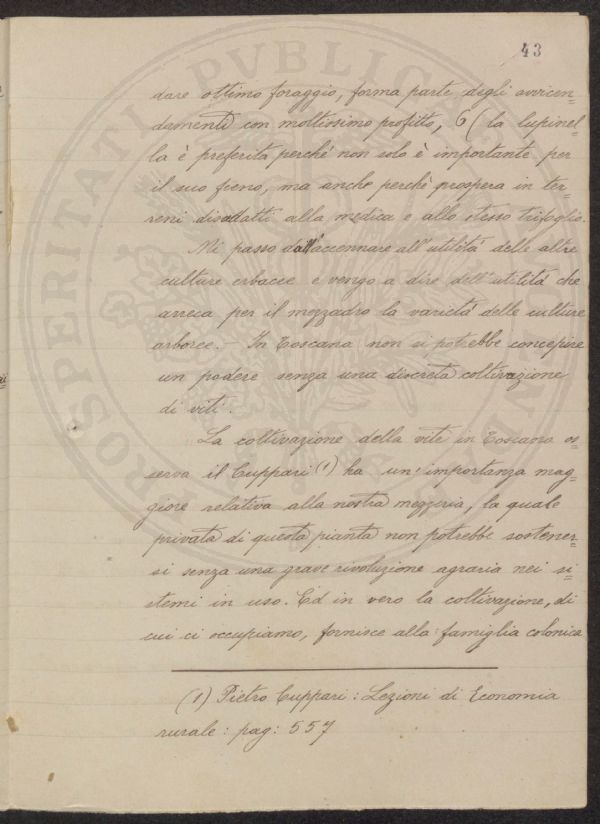 43
dare ottimo foraggio, forma parte degli avvicen=
damenti con moltissimo profitto, 6( la lupinel=
la è preferita perchè non solo è importante per
il suo fieno, ma anche perchè prospera in ter=
reni disadatti alla medica e allo stesso trifoglio.
Mi passo dall'accennare all'utilità delle altre
culture erbacee e vengo a dire dell'utilità che
arreca per il mezzadro la varietà delle culture
arboree. - In Toscana non si potrebbe concepire
un podere senza una discreta coltivazione
di viti.
La coltivazione della vite in Toscana os=
serva il Cuppari (1) ha un'importanza mag=
giore relativa alla nostra mezzeria, la quale
privata di questa pianta non potrebbe sostener=
si senza una grave rivoluzione agraria nei si=
stemi in uso. Ed in vero la coltivazione, di
cui ci occupiamo, fornisce alla famiglia colonica
(1) Pietro Cuppari: Lezioni di Economia
rurale: pag: 557
PROSPERITATI PVBLICAE